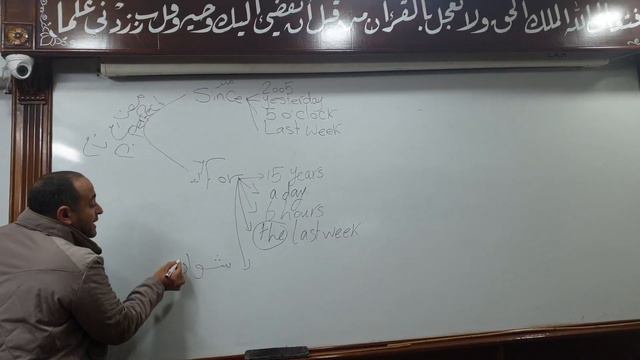 فتعالى الله الملك الحق ولا تعجل بالقرآن من قبل أن يقضى إليك وحيه وقل رب زدني علما
منذ
Since
2005
yesterday
5 o'clock
Last week
For
15 years
a day
6 hours
the last week